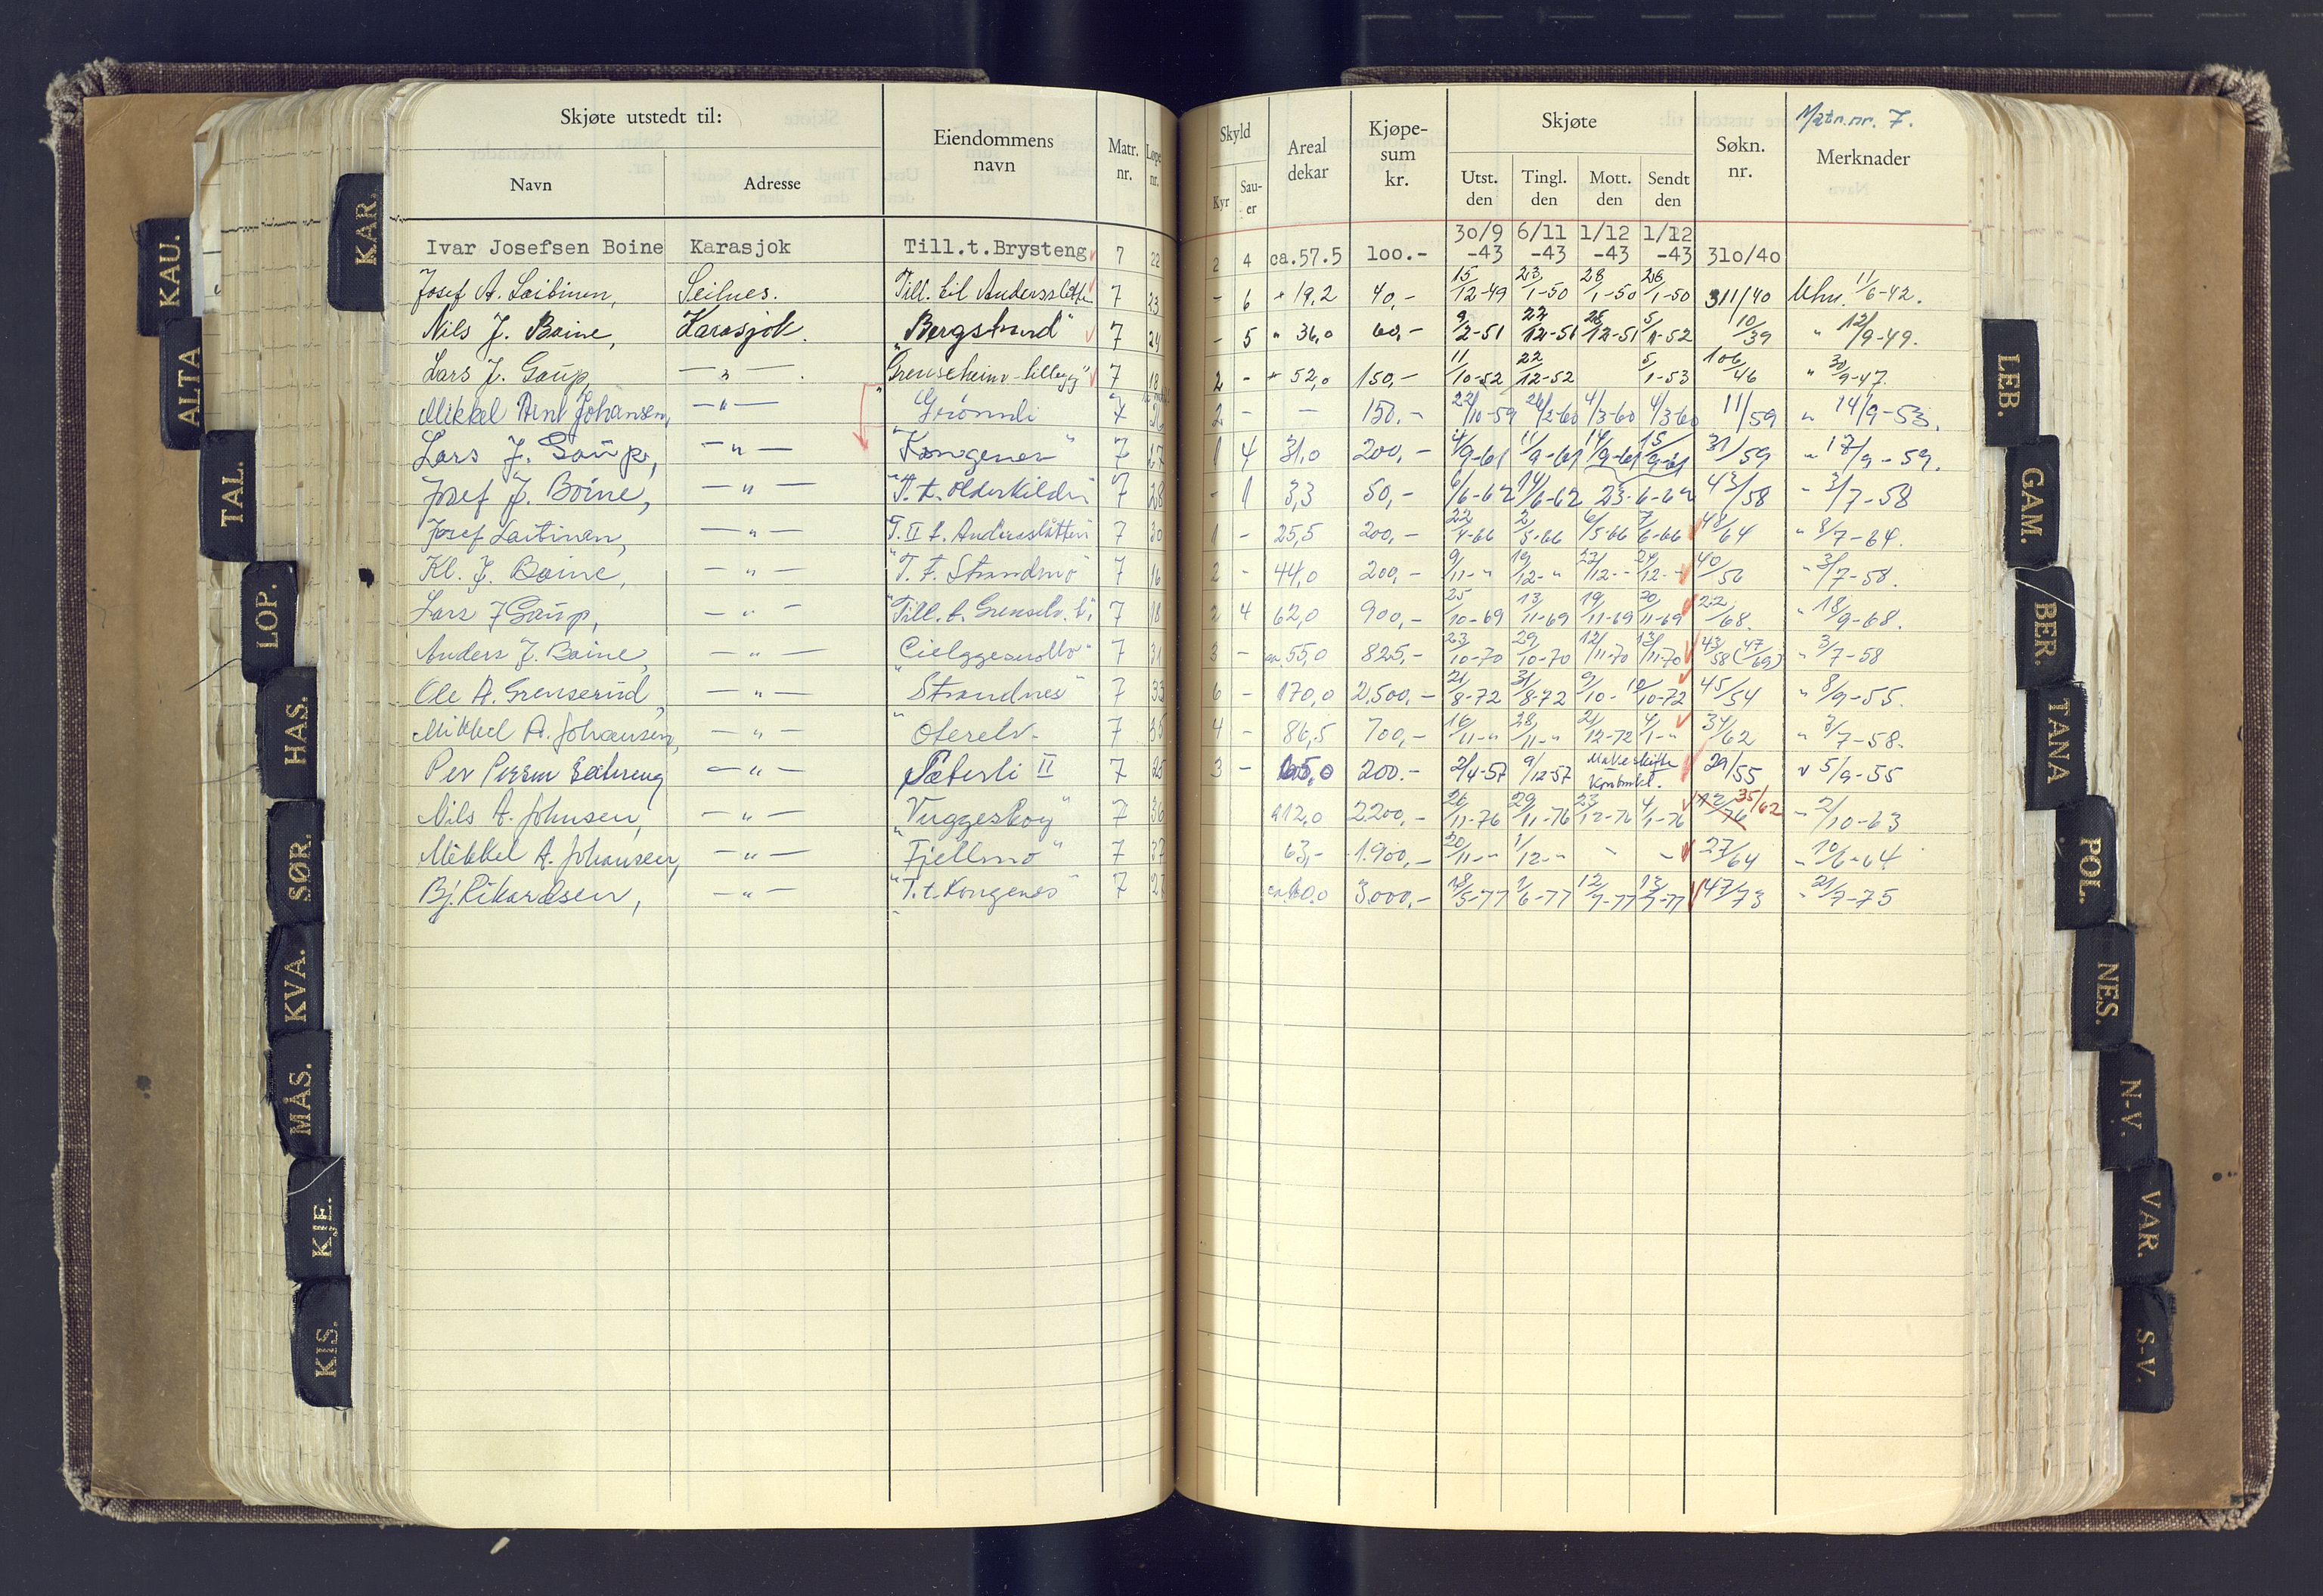 Matr.nr. 7.
Skjøte utstedt til:
Navn Adresse Eiendommens navn Matr. nr. Løpe nr. Skyld Kyr Sau-er Areal dekar Kjøpe-sum kr. Skjøte Utst. den Tingl. den Mott. den Sendt den Søkn. nr. Merknader
Ivar Josefsen Boine Karasjok Till.t.Brysteng 7 22 2 4 ca.57.5 100.- 30/9 -43 6/11 -43 1/12 -43 1/12 -43 310/40
Josef A. Laitinen, Seilnes. Till. til Andersslotten 7 23 - 6 " 19,2 40,- 15/12-49 23/1-50 28/1-50 28/1-50 311/40 Uhn. 11/6-42.
Nils J. Boine, Karasjok. "Bergstrand" 7 24 - 5 " 36,0 60,- 9/2-51 22/12-51 28/12-51 5/1-52 10/39 " 12/9-49.
Lars J. Gaup — " — . "Grenseheim-tillegg" 7 18 2 - " 52,0 150,- 11/10-52 22/12-52 5/1-53 106/46 " 30/9-47.
Mikkel Arnt Johansen, — " — "Grønnli 7 2 - — 150.- 22/10-59 26/2-60 4/3-60 4/3-60 11/59 " 14/9-53.
Lars J. Gaup, — " — "Kongenes" 7 27 1 4 31,0 200,- 4/9-61 11/9-61 14/9-61 15/9-61 31/59 " 17/9-59.
Josef J. Boine, — " — "T.t. Olderkilden 7 28 - 1 3,3 50,- 6/6-62 14/6-62 23-6-62 43/58 - 3/7-58
Josef Laitinen, — " — "T. II t. Andersslåtten 7 30 1 - 25,5 200,- 22/4-66 2/5-66 6/5-66 7/6-66 48/64 " 8/7-64.
Kl. J. Boine, — " — "T. t. Strandmo" 7 16 2 - 44,0 200,- 9/11-" 19/12-" 22/12-- 24/12-" 40/56 - 3/7-58.
Lars J Gaup, — " — "Till. t. Grenseh. t." 7 18 2 4 62,0 900,- 25/10-69 13/11-69 19/11-69 20/11-69 22/68. " 18/9-68.
Anders J. Boine, — " — "Cielggesuollo" 7 31 3 - ca. 55,0 825,- 23/10-70 29/10-70 12/11-70 13/11-70 43/58 (47/69) " 3/7-58
Ole A. Grenserud, — " — "Strandnes" 7 33 6 - 170,0 2.500,- 21/8-72 31/8-72 9/10- 10/10-72 45/54 " 8/9-55.
Mikkel A. Johansen, — " — "Oterelv- 7 35 4 - 86,5 700,- 16/11-" 28/11-" 21/12-72 4/1-" 34/62 " 3/7-58.
Per Persen — " — Sæterli II 7 25 3 - 65,0 200.- 2/4-57 9/12-57 Makeskifte Kontrakt. 29/55 " 5/9-55
Nils A. Johnsen, — " — "Vuggeskog" 7 36 112,0 2.200,- 26/11-76 29/11-76 23/12-76 4/1-76 12/76 35/62 - 2/10-63
Mikkel A. Johansen, — " — "Fjellmo" 7 37 63,- 1.900,- 20/11-" 1/12-" - - 27/64 - 10/6-64
Bj. Rikardsen, — " — "T.t. Kongenes" 7 27 ca. 60.0 3.000,- 18/5-77 1/6-77 12/7-77 13/7-77 47/73 - 21/7-75
KAU.
ALTA
TAL.
LOP.
HAS.
SØR.
KVA.
MÅS.
KJE.
KIS.
KAR.
LEB.
GAM.
BER.
TANA
POL.
NES.
N-V.
VAR.
S-V.